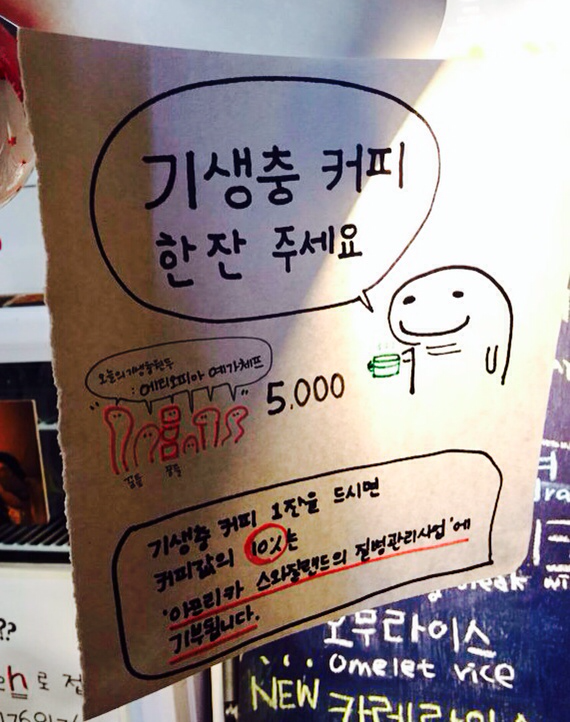 기생충 커피
한 잔 주세요
오늘의 기생충원두
: 에티오피아 예가체프
" "
5,000
꿈틀
꿈틀
기생충 커피 1잔을 드시면
커피값의 10%는
'아프리카 스와질랜드의 질병관리사업'에
기부됩니다.
??
로 접
오무라이스
Omelet rice
NEW 카레라이스